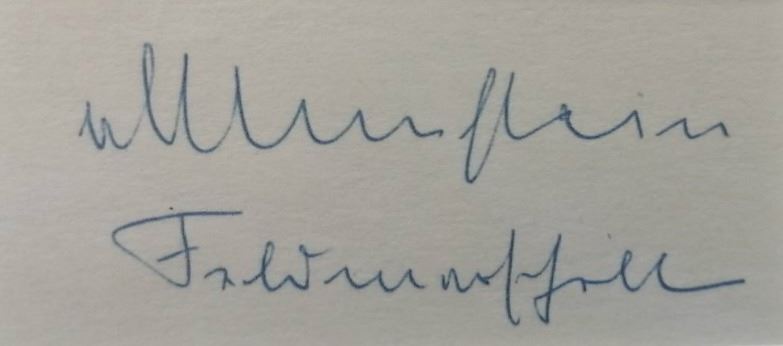 v Manstein
Feldmarschall